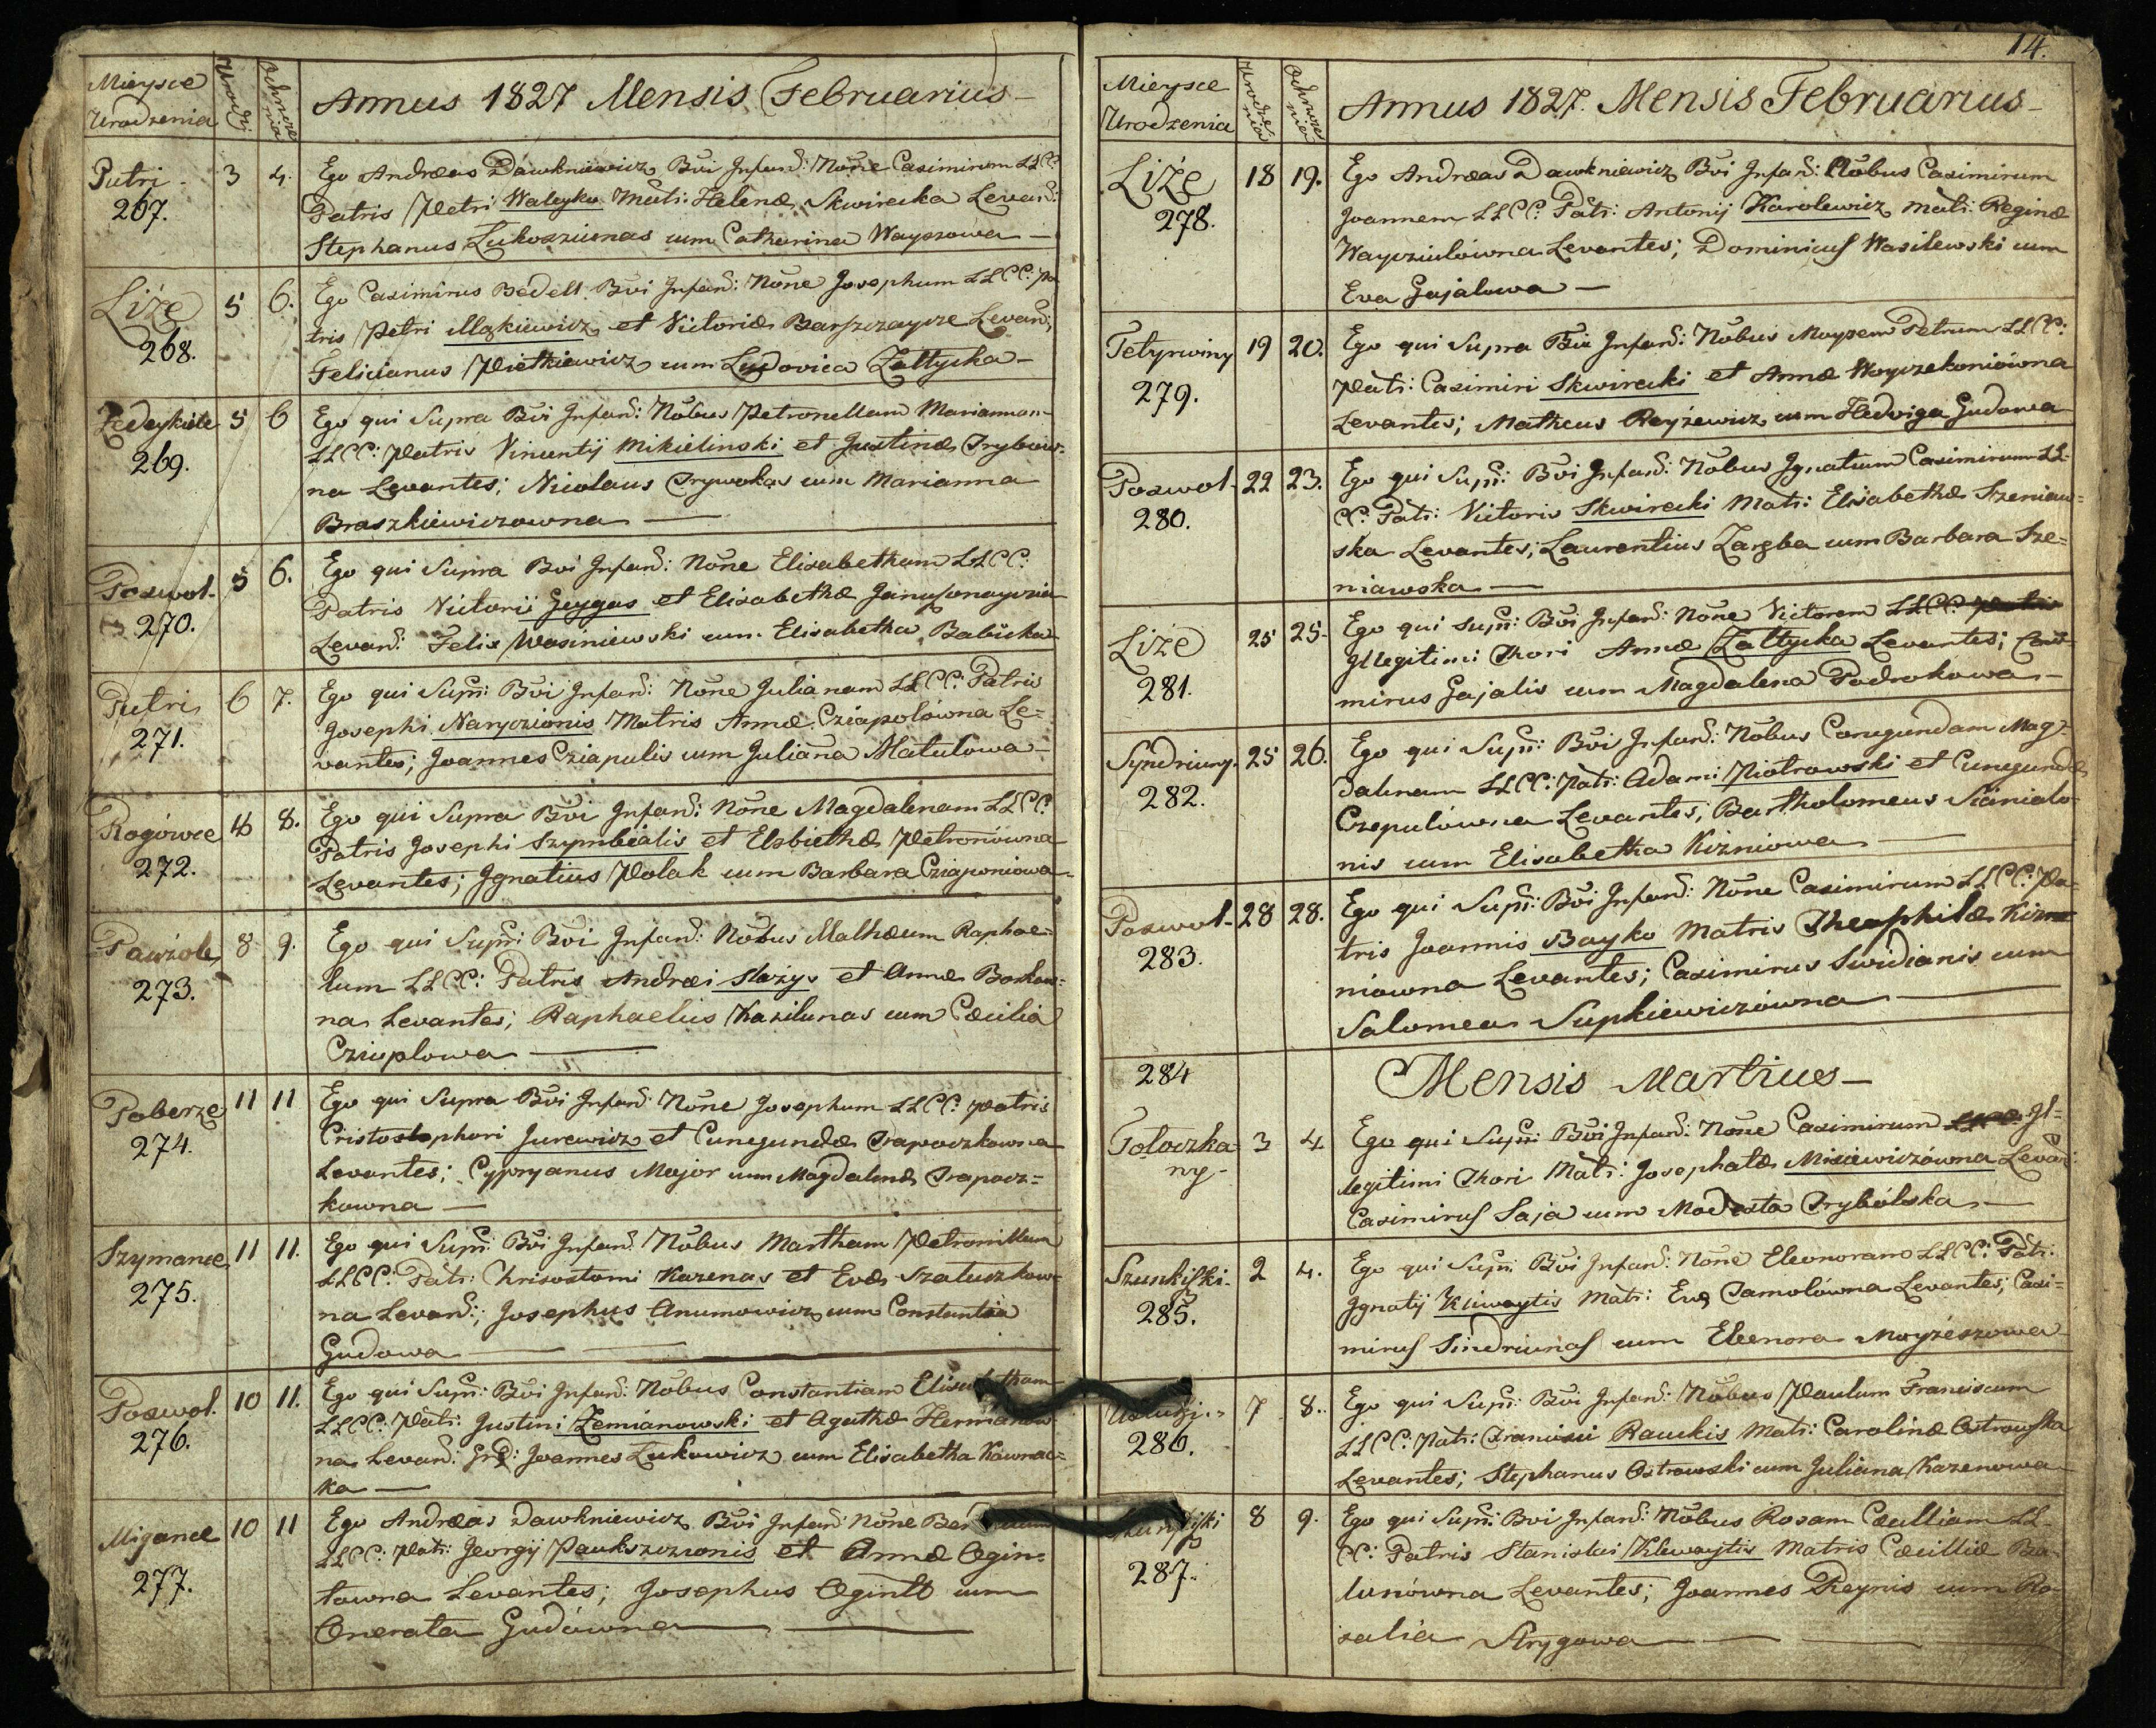 Mieysce
Urodzenia
Urodz:
Ochrzcze
nia
Annus 1827 Mensis Februarius
Putri
267.
3
4.
Ego Andreas Dawkniewicz Bvi Infand: None Casimirum LLCC:
Patris Petri Waleyko Matr: Helenæ Skwirecka Levand:
Stephanus Lukosziunas cum Catharina Wayszowa
Liże
268.
5
6.
Ego Casimirus Bedelt Bvi Infand: None Josephum LLCC: Pa
tris Petri Mąkiewicz et Victoriæ Barszczaycze Levand:
Felicianus Pietkiewicz cum Ludovica Zaltycka
269.
5
6
Ego qui Supra Bvi Infand: Nobus Petronellam Mariannam
LLCC: Patris Vincentij Mikielinski et Justinæ Trybow=
na Levantes; Nicolaus Trywokas cum Marianna
Braszkiewiczowna
Poswol.
270.
5
6.
Ego qui Supra Bvi Infand: None Elisabetham LLCC:
Patris Victorii Geygas et Elisabethæ
Levand: Felix Wasiniewski cum Elisabetha Babicka
Putri
271.
6
7.
Ego qui Supr: Bvi Infand: None Julianam LLCC: Patris
Josephi Naryczionis Matris Annæ Cziapolowna Le=
vantes; Joannes Cziapulis cum Juliana Matulowa
Rogówce
272.
8.
Ego qui Supra Bvi Infand: None Magdalenam LLCC:
Patris Josephi Szymbialis et Elzbiethæ Petroniówna
Levantes; Ignatius Polak cum Barbara Cziaponiowa
Pawżole
273.
8
9.
Ego qui Supr: Bvi Infand: Nobus Mathæum Raphae=
lum LLCC: Patris Andreæi Stażys et Annæ Borkow=
na Levantes; Raphaelus Kazilunas cum Cæcilia
Cziuplowa
Paberze
274.
11
11
Ego qui Supra Bvi Infand: None Josephum LLCC: Patris
Cristostophori Jurewicz et Cunegundæ Trapaczkowna
Levantes; Cypryanus Major cum Magdalenæ Trapacz=
kowna
Szymance
275.
11
11.
Ego qui Supr: Bvi Infand: Nobus Martham Petronillam
LLCC: Patr: Chrisostomi Karenas et Evæ Szatuszkow=
na Levand:; Josephus Anumowicz cum Constantia
Gudowa
Poswol.
276.
10
11.
Ego qui Supr: Bvi Infand: Nobus Constantiam Elisabetham
LLCC: Patr: Justini Zemianowski et Agathæ Hermanow
na Levand: Joannes Lukowicz cum Elisabetha Kawnac=
ka
Migance
277.
10
11
Ego Andreas Dawkniewicz Bvi Infand: None
LLCC: Patr: Georgij Paukszczionis et Annæ Ogin=
towna Levantes; Josephus Ogintt cum
Onerata Gudówna
14.
Mieysce
Urodzenia
Urodze
nia
Ochrzcze
nia
Annus 1827. Mensis Februarius
Liże
278.
18
19.
Ego Andreas Dawkniewicz Bvi Infand: Nobus Casimirum
Joannem LLCC: Patr: Antonij Karolewicz Matr: Reginæ
Wayciulówna Levantes; Dominicus Wasilewski cum
Eva Gajalowa
Tetyrwiny
279.
19
20.
Ego qui Supra Bvi Infand: Nobus Moysem Petrum LLCC:
Patr: Casimiri Skwirecki et Annæ Woyczekoniówna
Levantes; Matheus Reyżewicz cum Hedviga Gudowa
Poswol.
280.
22
23.
Ego qui Supr: Bvi Infand: Nobus Ignatium Casimirum LL
CC: Patr: Victoris Skwirecki Matr: Elisabethæ Szeniaw=
ska Levantes; Laurentius Zaręba cum Barbara Sze=
niawska
Liże
281.
25
25.
Ego qui Supr: Bvi Infand: None Victorem LLCC: Patris
Illegitimi Thori Annæ Zaltycka Levantes; Casi=
mirus Gajalis cum Magdalena Padrokowa
Syndriuny.
282.
25
26.
Ego qui Supr: Bvi Infand: Nobus Conegundam Mag=
dalenam LLCC: Patr: Adami Piotrowski et Cunegundæ
Czepulówna Levantes; Bartholomeus Scianialo
nis cum Elisabetha Kizniowa
Poswol.
283.
28
28.
Ego qui Supr: Bvi Infand: None Casimirum LLCC: Pa=
tris Joannis Bayko Matris Theophilæ Kiz
niowna Levantes; Casimirus Swidianis cum
Salomea Supkiewiczówna
284
Mensis Martius
Toloczka
ny.
3
4.
Ego qui Supr: Bvi Infand: None Casimirum LLCC Il=
legitimi Thori Matr: Josephatæ Misiewiczówna Levan:
Casimirus Saja cum Modesta Trybólska
Szunkiski.
285.
2
4.
Ego qui Supr: Bvi Infand: None Eleonoram LLCC: Patr:
Ignatij Kliwaytis Matr: Evæ Jamolówna Levantes; Casi=
mirus Sindriunas cum Eleenora Moyżeszowa
286.
7
8.
Ego qui Supr: Bvi Infand: Nobus Paulum Franciscum
LLCC: Patr: Francisci Rauckis Matr: Carolinæ Ostrowska
Levantes; Stephanus Ostrowski cum Juliana Karenowa
287.
8
9.
Ego qui Supr: Bvi Infand: Nobus Rosam Cæcilliam LL
CC: Patris Stanislai Klewaytis Matris Cæcilliæ Ba
lunówna Levantes; Joannes Reynis cum Ro
salia Strygowa